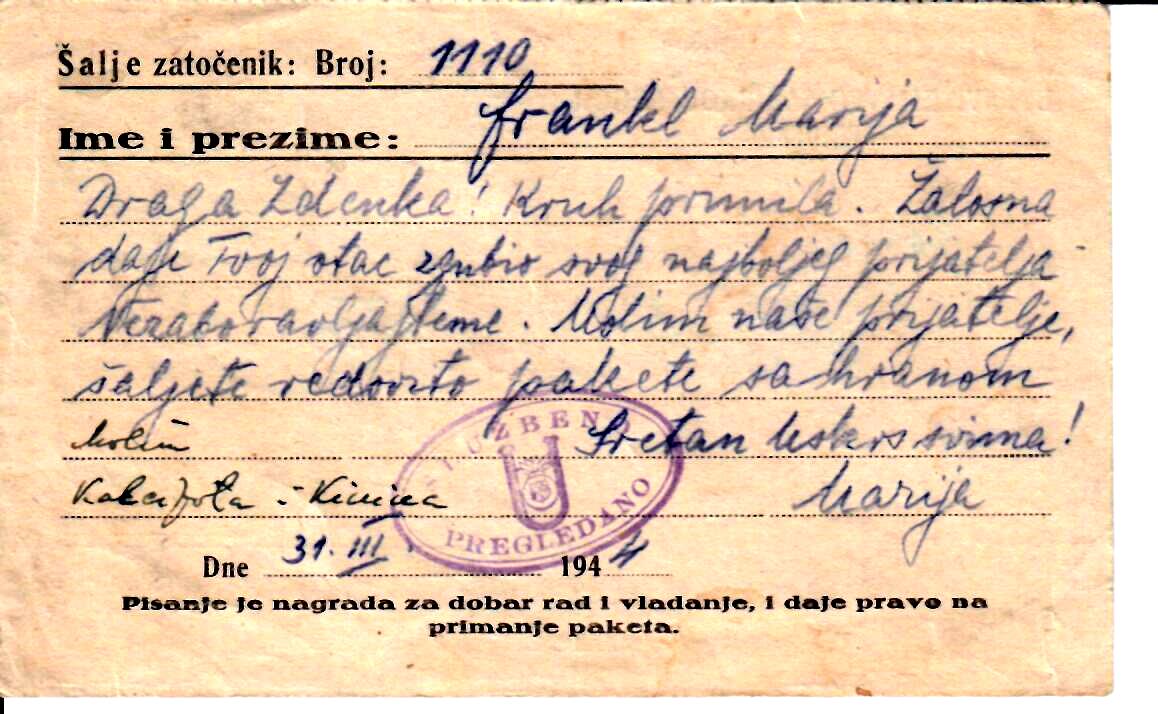 Šalje zatočenik: Broj: 1110
Ime i prezime: Frankl Marija
Draga Zdenka! Kruh primila. Žalosna
daje Tvoj otac zgubio svog najboljeg prijatelja
Nezaboravljajteme. Molim naše prijatelje,
šaljete redovito pakete sa hranom
Molim Sretan Uskrs svima!
i Kinina Marija
SLUŽBENO
U
PREGLEDANO
Dne 31. III 1944
Pisanje je nagrada za dobar rad i vladanje, i daje pravo na
primanje paketa.